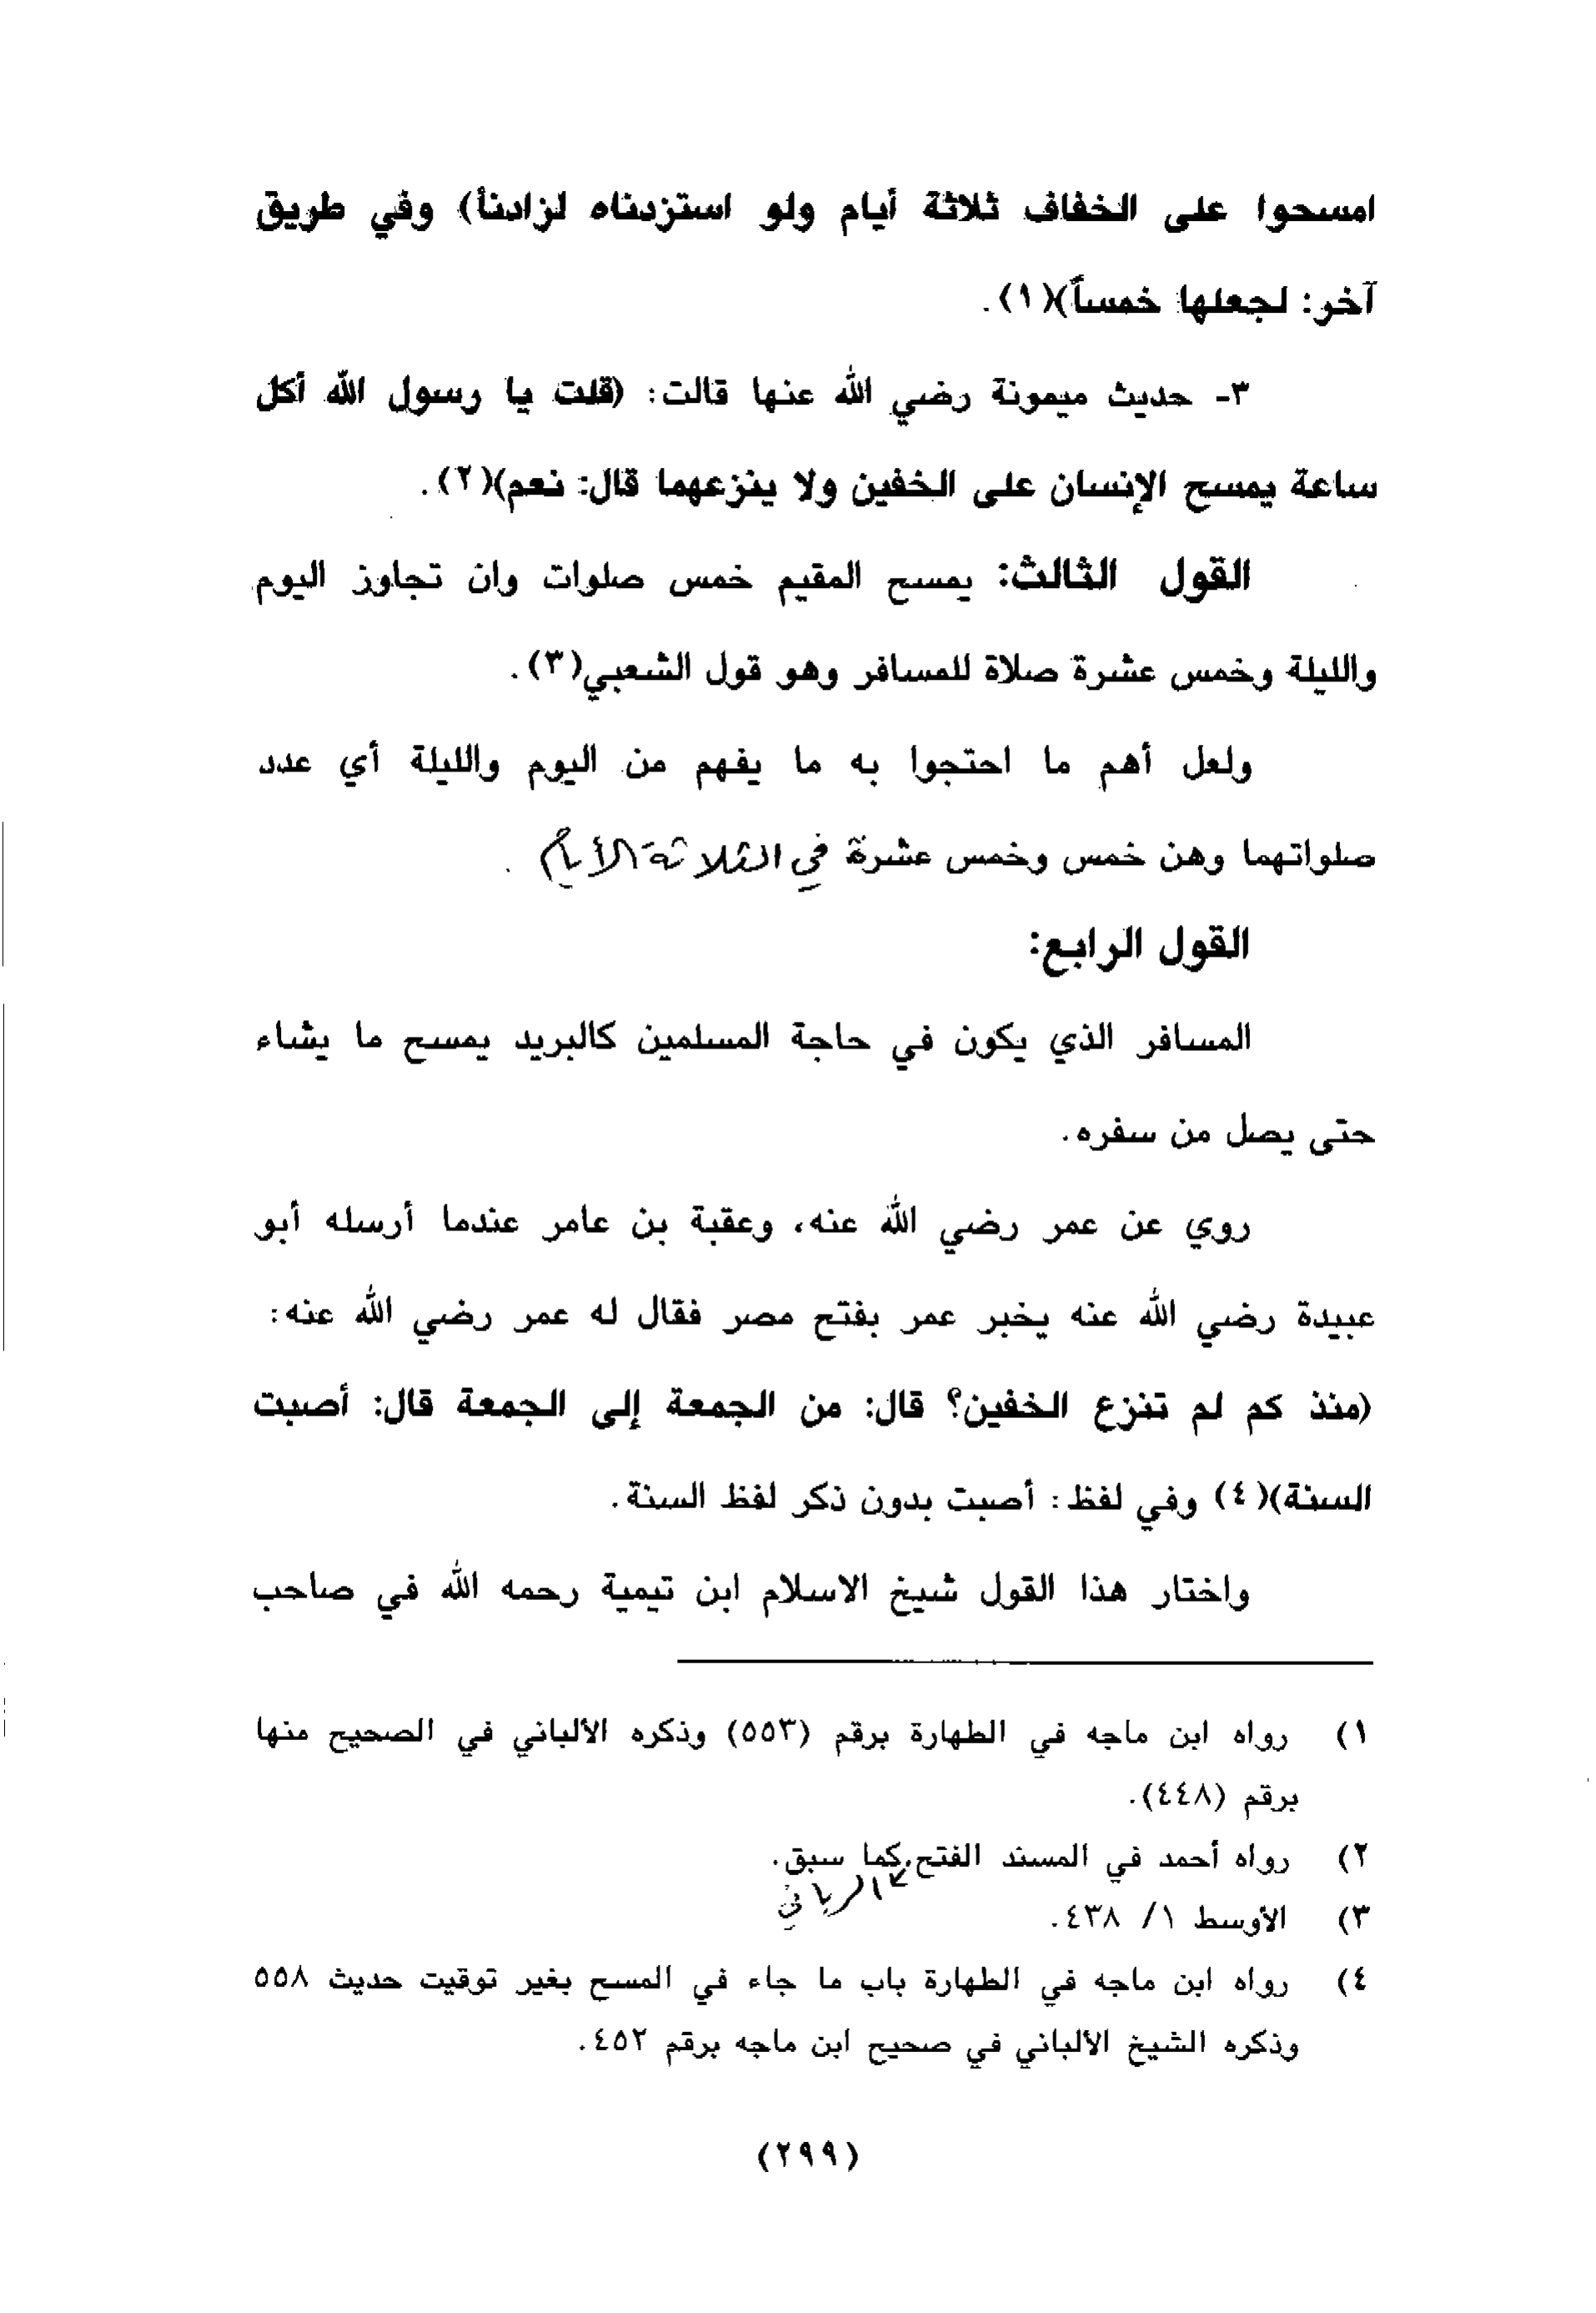 امسحوا على الخفاف ثلاثة أيام ولو استزدناه لزادنا) وفي طريق
آخر: لجعلها خمساً)(١).
٣- حديث ميمونة رضي الله عنها قالت: (قلت يا رسول الله أكل
ساعة يمسح الإنسان على الخفين ولا ينزعهما قال: نعم)(٢).
القول الثالث: يمسح المقيم خمس صلوات وان تجاوز اليوم
والليلة وخمس عشرة صلاة للمسافر وهو قول الشعبي(٣).
ولعل أهم ما احتجوا به ما يفهم من اليوم والليلة أي عدد
صلواتهما وهن خمس وخمس عشرة في الثلاثة الأيام .
القول الرابع:
المسافر الذي يكون في حاجة المسلمين كالبريد يمسح ما يشاء
حتى يصل من سفره.
روي عن عمر رضي الله عنه، وعقبة بن عامر عندما أرسله أبو
عبيدة رضي الله عنه يخبر عمر بفتح مصر فقال له عمر رضي الله عنه:
(منذ كم لم تنزع الخفين؟ قال: من الجمعة إلى الجمعة قال: أصبت
السنة)(٤) وفي لفظ: أصبت بدون ذكر لفظ السنة.
واختار هذا القول شيخ الاسلام ابن تيمية رحمه الله في صاحب
١) رواه ابن ماجه في الطهارة برقم (٥٥٣) وذكره الألباني في الصحيح منها
برقم (٤٤٨).
٢) رواه أحمد في المسند الفتح كما سبق.
الرباني
٣) الأوسط ١/ ٤٣٨.
٤) رواه ابن ماجه في الطهارة باب ما جاء في المسح بغير توقيت حديث ٥٥٨
وذكره الشيخ الألباني في صحيح ابن ماجه برقم ٤٥٢.
(٢٩٩)